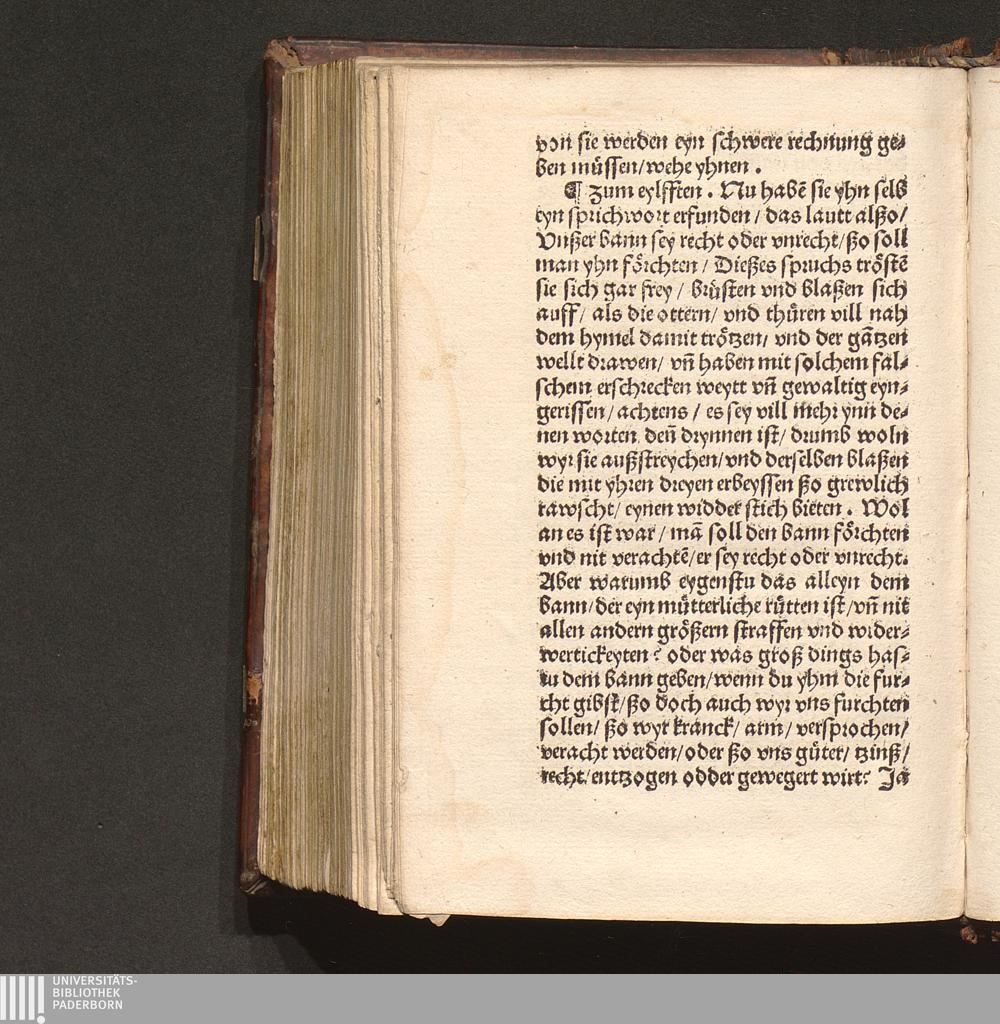 von sie werden eyn schwere rechnung ge⸗
ben müssen/wehe yhnen .
¶ Zum eylfften . Nu habē sie yhn selb
eyn sprichwort erfunden / das lautt alßo/
Vnßer bann sey recht oder vnrecht/ßo soll
man yhn förchten / Dießes spruchs tröstē
sie sich gar frey / brüsten vnd blaßen sich
auff/ als die ottern/ vnd thüren vill nah
dem hymel damit trötzen/ vnd der gātzen
wellt drawen/ vn̄ haben mit solchem fal⸗
schem erschrecken weytt vn̄ gewaltig eyn⸗
gerissen/achtens / es sey vill mehr ynn de⸗
nen worten den̄ drynnen ist/ drumb woln
wyr sie außstreychen/vnd derselben blaßen
die mit yhren dreyen erbeyssen ßo grewlich
rawscht/ eynen widder stich bieten . Wol
an es ist war / mā soll den bann förchten
vnd nit verachtē/er sey recht oder vnrecht.
Aber warumb eygenstu das alleyn dem
bann/der eyn mütterliche rütten ist/vn̄ nit
allen andern größern straffen vnd wider⸗
wertickeyten? oder was groß dings has⸗
tu dem bann geben/wenn du yhm die fur⸗
cht gibst/ßo doch auch wyr vns furchten
sollen/ ßo wyr kranck/ arm/ versprochen/
veracht werden/oder ßo vns güter/ tzinß/
recht/entzogen odder gewegert wirt? Ja
UNIVERSITÄTS-
BIBLIOTHEK
PADERBORN